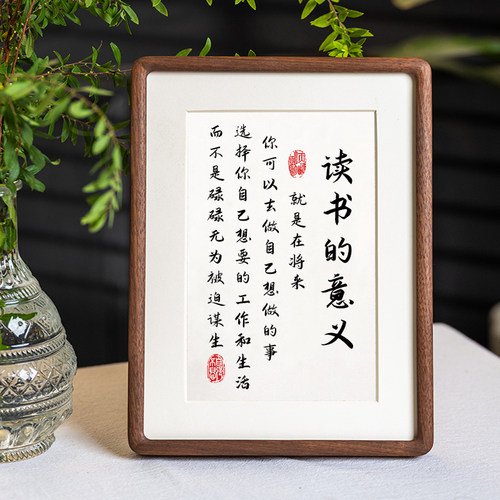 读书的意义
就是在将来
你可以去做自己想做的事
选择你自己想要的工作和生活
而不是碌碌无为被迫谋生